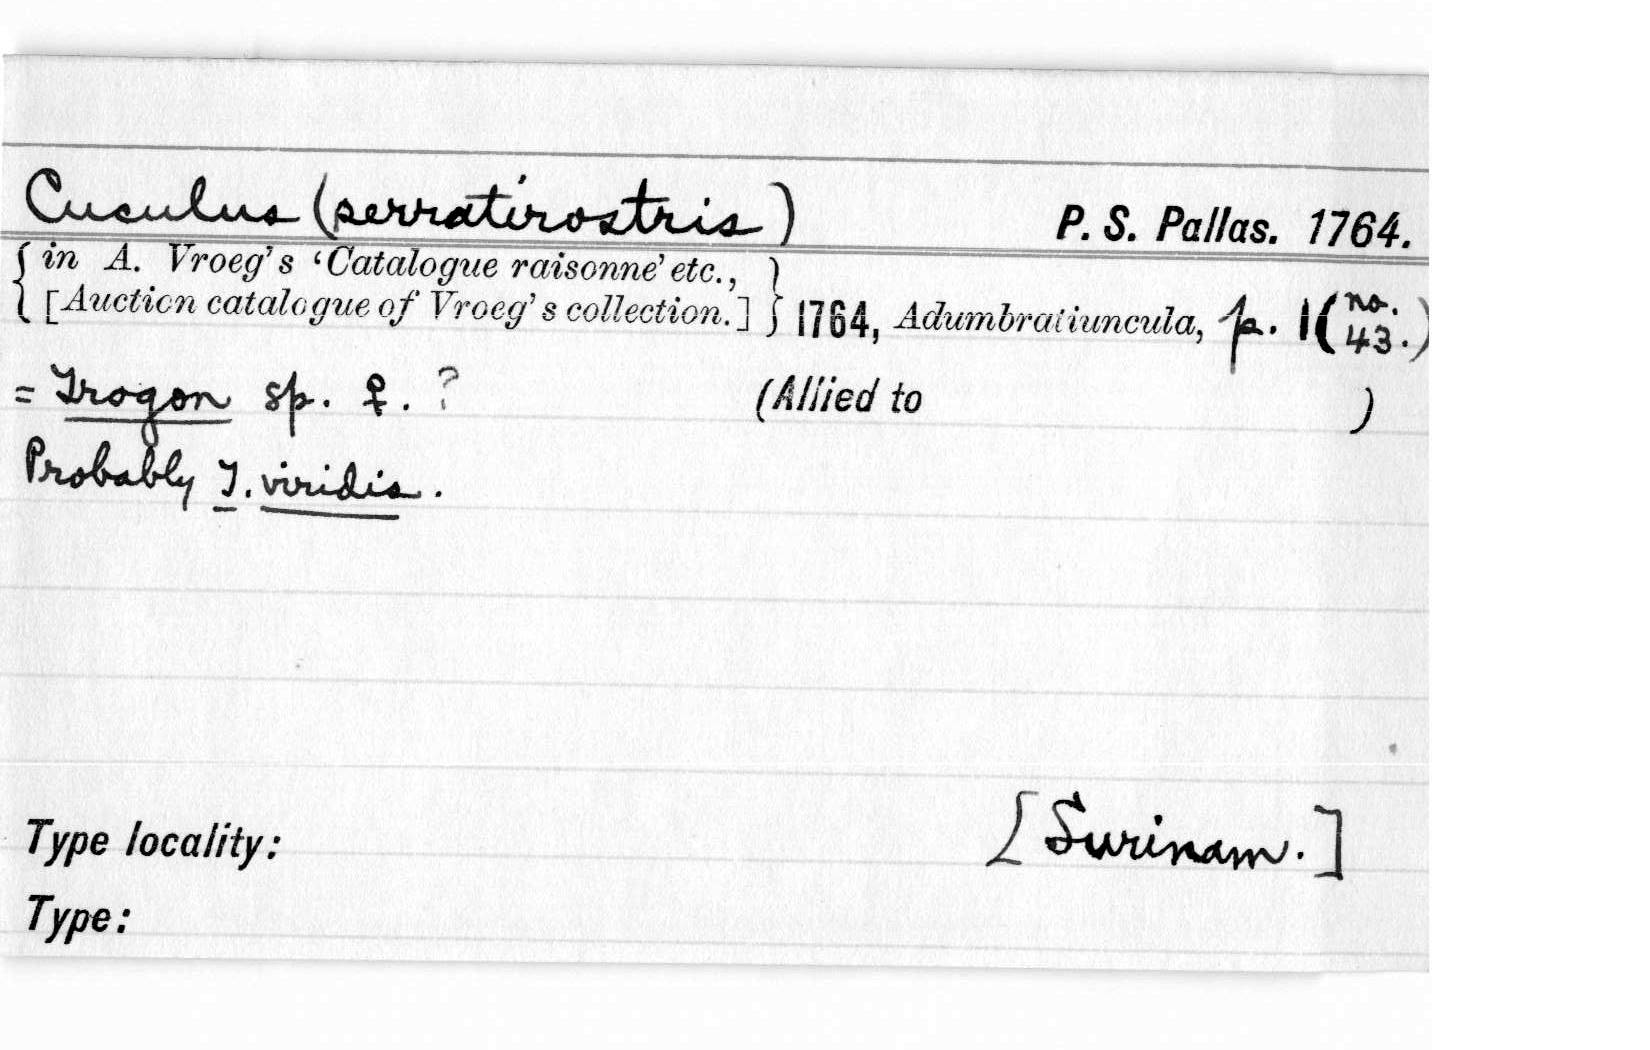 Cuculus (serratirostris) P. S. Pallas. 1764.
{ in A. Vroeg's ‘Catalogue raisonne’ etc., }
{ [Auction catalogue of Vroeg's collection.] } 1764, Adumbratiuncula, p. 1 (no. 43.)
= Trogon sp. ♀. ? (Allied to )
Probably T. viridis.
Type locality: [Surinam.]
Type: